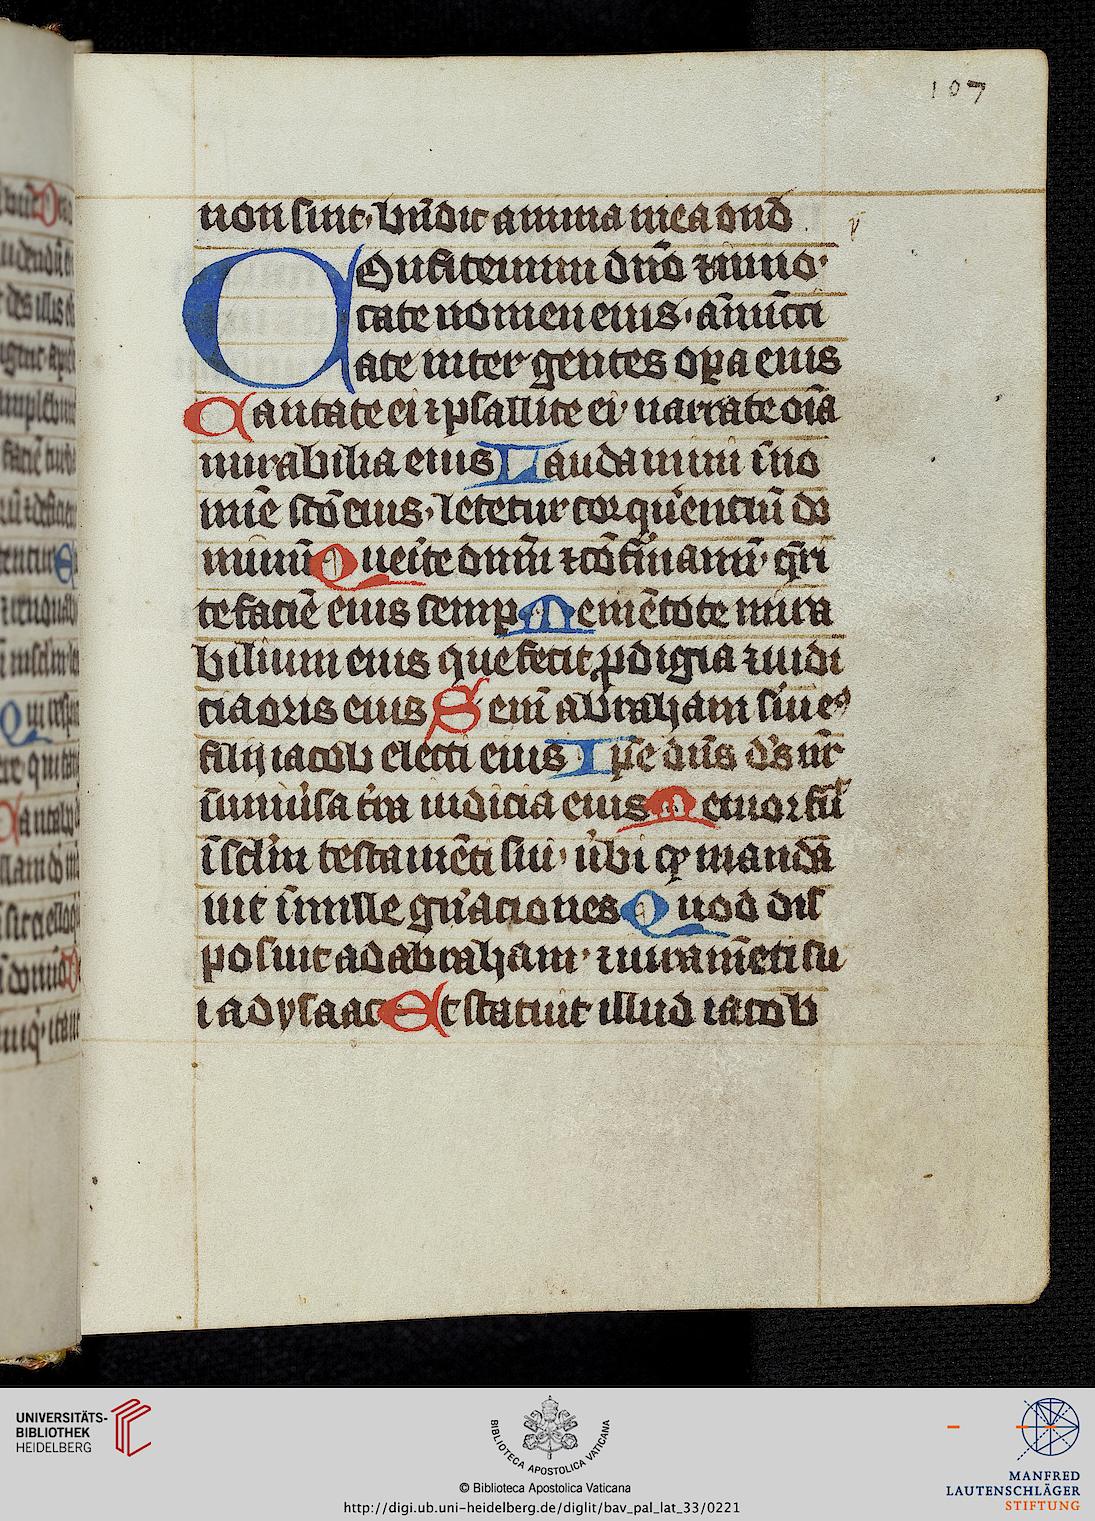 107
non sint, bn̄dic anima mea dnō
COnfitemini dnō ⁊ inuo·
cate nomen eius · an̄ūcti
ate inter gentes oꝑa eius
Cantate ei ⁊ psallite ei· narrate oīa
mirabilia eius Laudamini ī no
mīe scō eius, letetur cor que̍ntiū do
minū Que̍ite dnūm ⁊ cōfirmam̄i · qr̄i
te faciē eius semp Memētote mira
bilium eius que fecit, ꝓdigia ⁊ iudi
cia oris eius Semē abraham sūi eꝰ
filij iacob electi eius Ipe dūs ds̍ nr̄
ī uniūsa tr̍a iudicia eius Memor fūı̍t
ī sclm̄ testamēti sui, ūbi qꝫ manda
uit ī mille gn̍aciones Quod dis
posuit ad abraham · ⁊ iuramēti su
i ad ysaac Et statuit illud iacob
UNIVERSITÄTS-
BIBLIOTHEK
HEIDELBERG
BIBLIOTECA APOSTOLICA VATICANA
© Biblioteca Apostolica Vaticana
http://digi.ub.uni-heidelberg.de/diglit/bav_pal_lat_33/0221
MANFRED
LAUTENSCHLÄGER
STIFTUNG